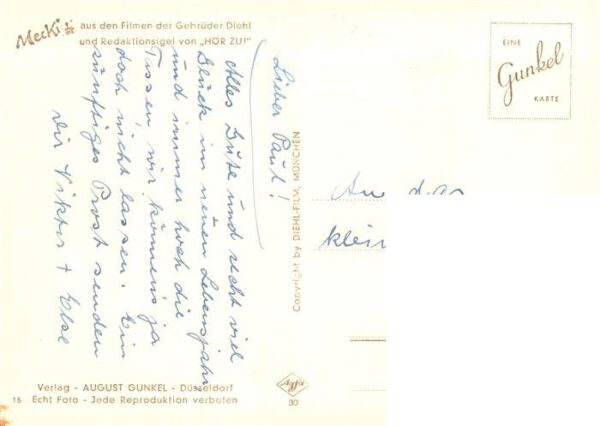 Mecki aus den Filmen der Gebrüder Diehl
und Redaktionsigel von „HÖR ZU!"
EINE
Gunkel
KARTE
Lieber Paul!
Alles Gute und recht viel
Glück im neuen Lebensjahr
und immer hoch die
Tassen, wir können's ja
doch nicht lassen. Ein
zünftiges Prost senden
Dir Viktor + Else
Copyright by DIEHL-FILM, MÜNCHEN
An das
klein
Verlag - AUGUST GUNKEL - Düsseldorf
15 Echt Foto - Jede Reproduktion verboten
Agfa
30